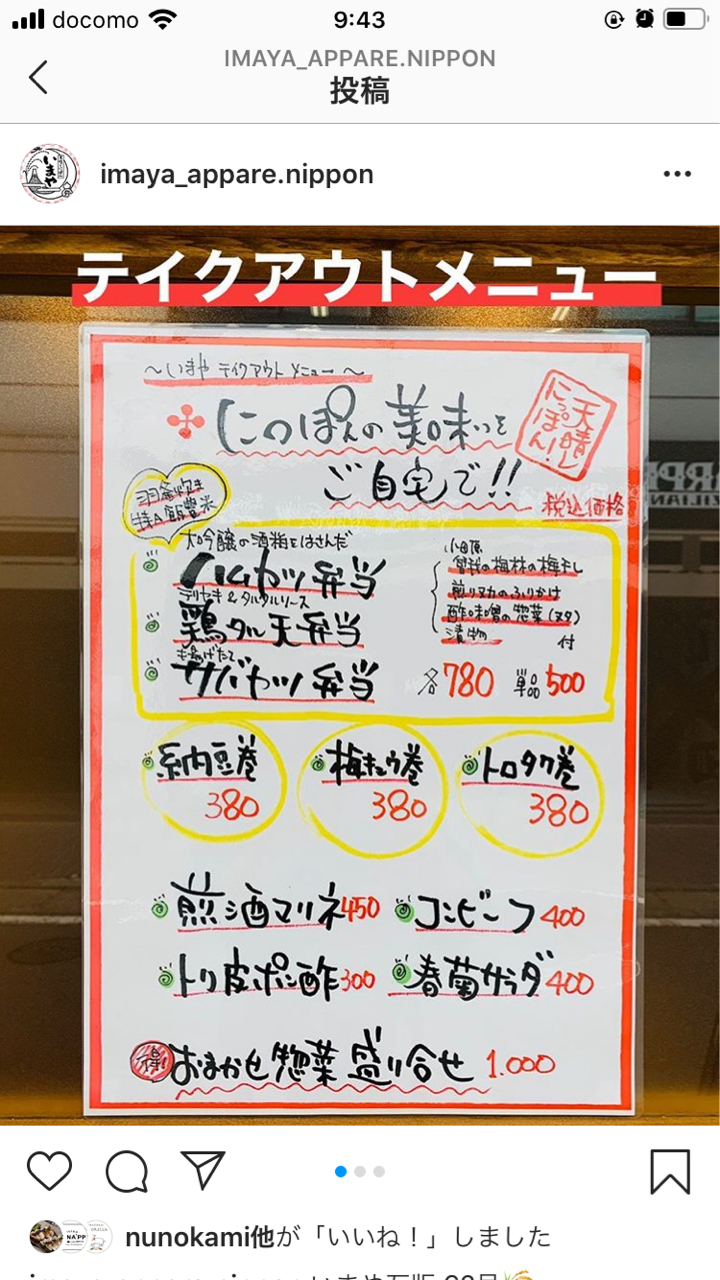 docomo
9:43
IMAYA_APPARE.NIPPON
投稿
いまや
imaya_appare.nippon
テイクアウトメニュー
〜いまや テイクアウトメニュー〜
にっぽんの美味いを
ご自宅で!!
天晴レ
にっぽん!
税込価格
羽釜炊き
特A飯豊米
大吟醸の酒粕をはさんだ
ハムカツ弁当
テリヤキ&タルタルソース
鶏タル天弁当
揚げたて
サバカツ弁当
小田原
曽我の梅林の梅干し
煎りヌカのふりかけ
酢味噌の惣菜(ヌタ)
漬物
付
各780 単品500
納豆巻
380
梅キュウ巻
380
トロタク巻
380
煎酒マリネ450
コンビーフ400
トリ皮ポン酢300
春菊サラダ400
得!
おまかせ惣菜盛り合せ 1.000
nunokami他が「いいね!」しました